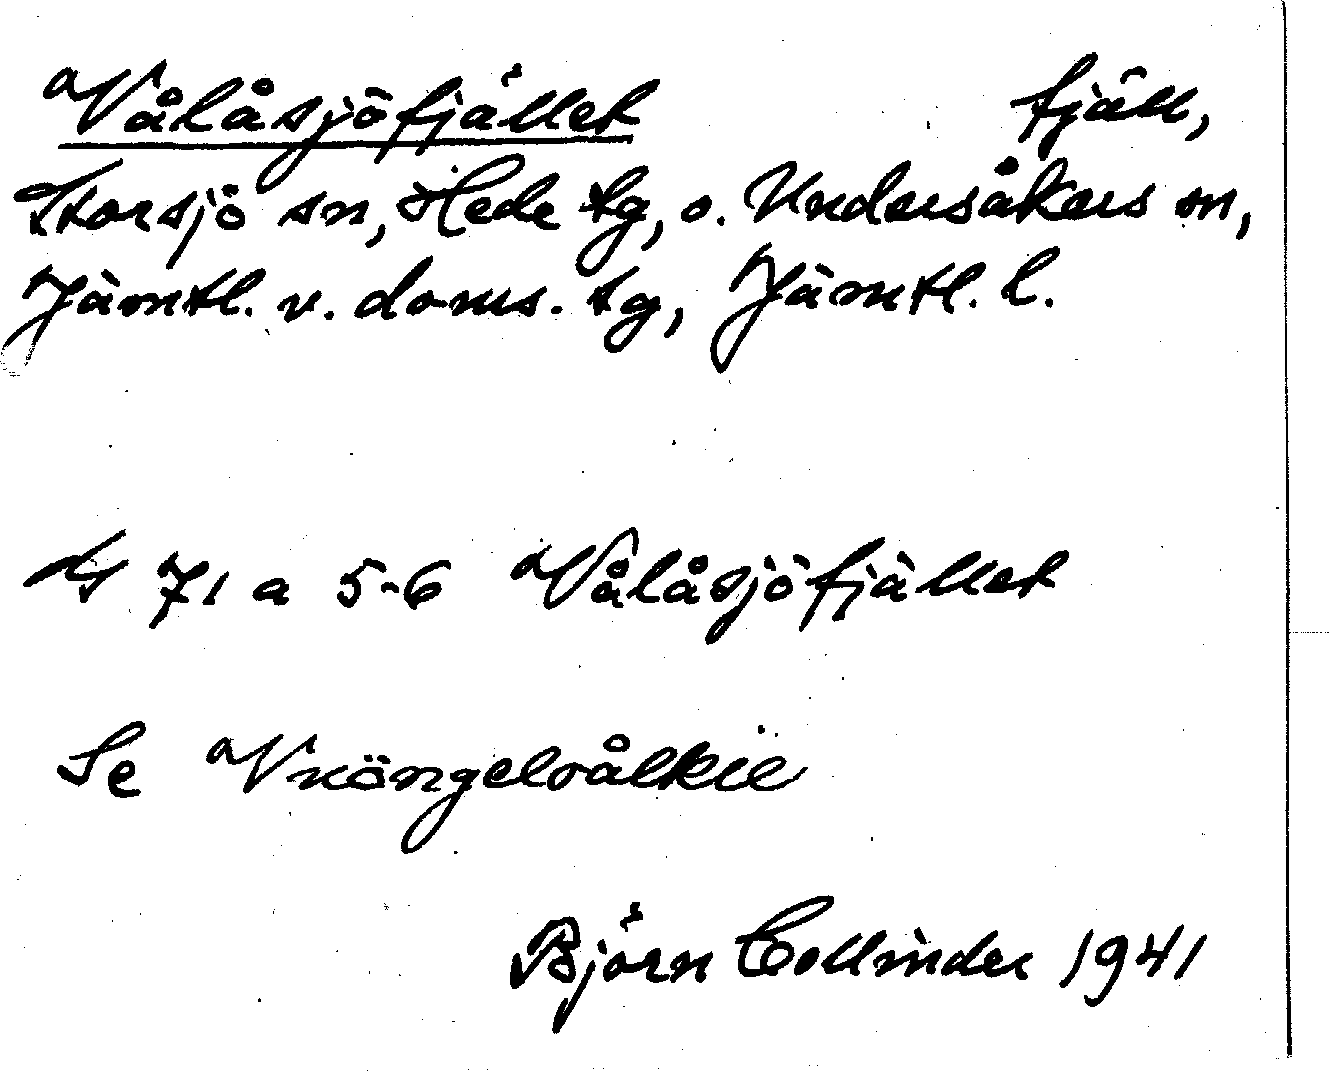 Vålåsjöfjället fjäll,
Storsjö sn, Hede tg, o. Undersåkers sn,
Jämtl. v. doms. tg, Jämtl. l.
71 a 5-6 Vålåsjöfjället
Se
Björn Collinder 1941